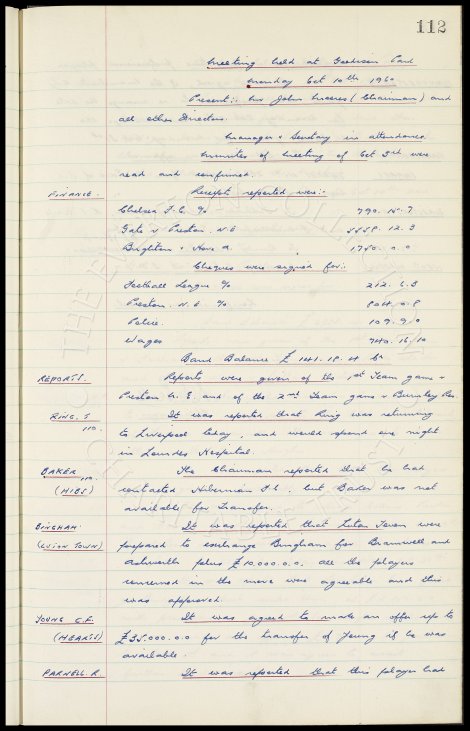 112
Meeting held at Goodison Park
Monday Oct 10th 1960
Present:- Mr John Moores (Chairman) and
all other Directors.
Manager & Secretary in attendance
Minutes of Meeting of Oct 3rd were
read and confirmed.
FINANCE. Receipts reported were:-
Chelsea F.C. % 790. 15. 7
Gate v Preston. N.E 5558. 12. 3
Brighton & Hove A. 1750. 0. 0
Cheques were signed for:-
Football League % 212. 6. 3
Preston. N. E. % 804. 0. 8
Police. 109. 9. 0
Wages 740. 16. 10
Bank Balance £ 141. 18. 4 Cr
REPORTS. Reports were given of the 1st Team game v
Preston N. E. and of the 2nd Team game v Burnley Res.
RING. T It was reported that Ring was returning
110. to Liverpool today, and would spend one night
in Lourdes Hospital.
BAKER The Chairman reported that he had
(HIBS) contacted Hibernian F.C. but Baker was not
available for Transfer.
BINGHAM It was reported that Luton Town were
(LUTON TOWN) prepared to exchange Bingham for Bramwell and
Ashworth plus £10.000.0.0. All the players
concerned in the move were agreeable and this
was approved.
YOUNG G.F. It was agreed to make an offer up to
(HEARTS) £35.000.0.0 for the transfer of Young if he was
available.
PARNELL. R. It was reported that this player had